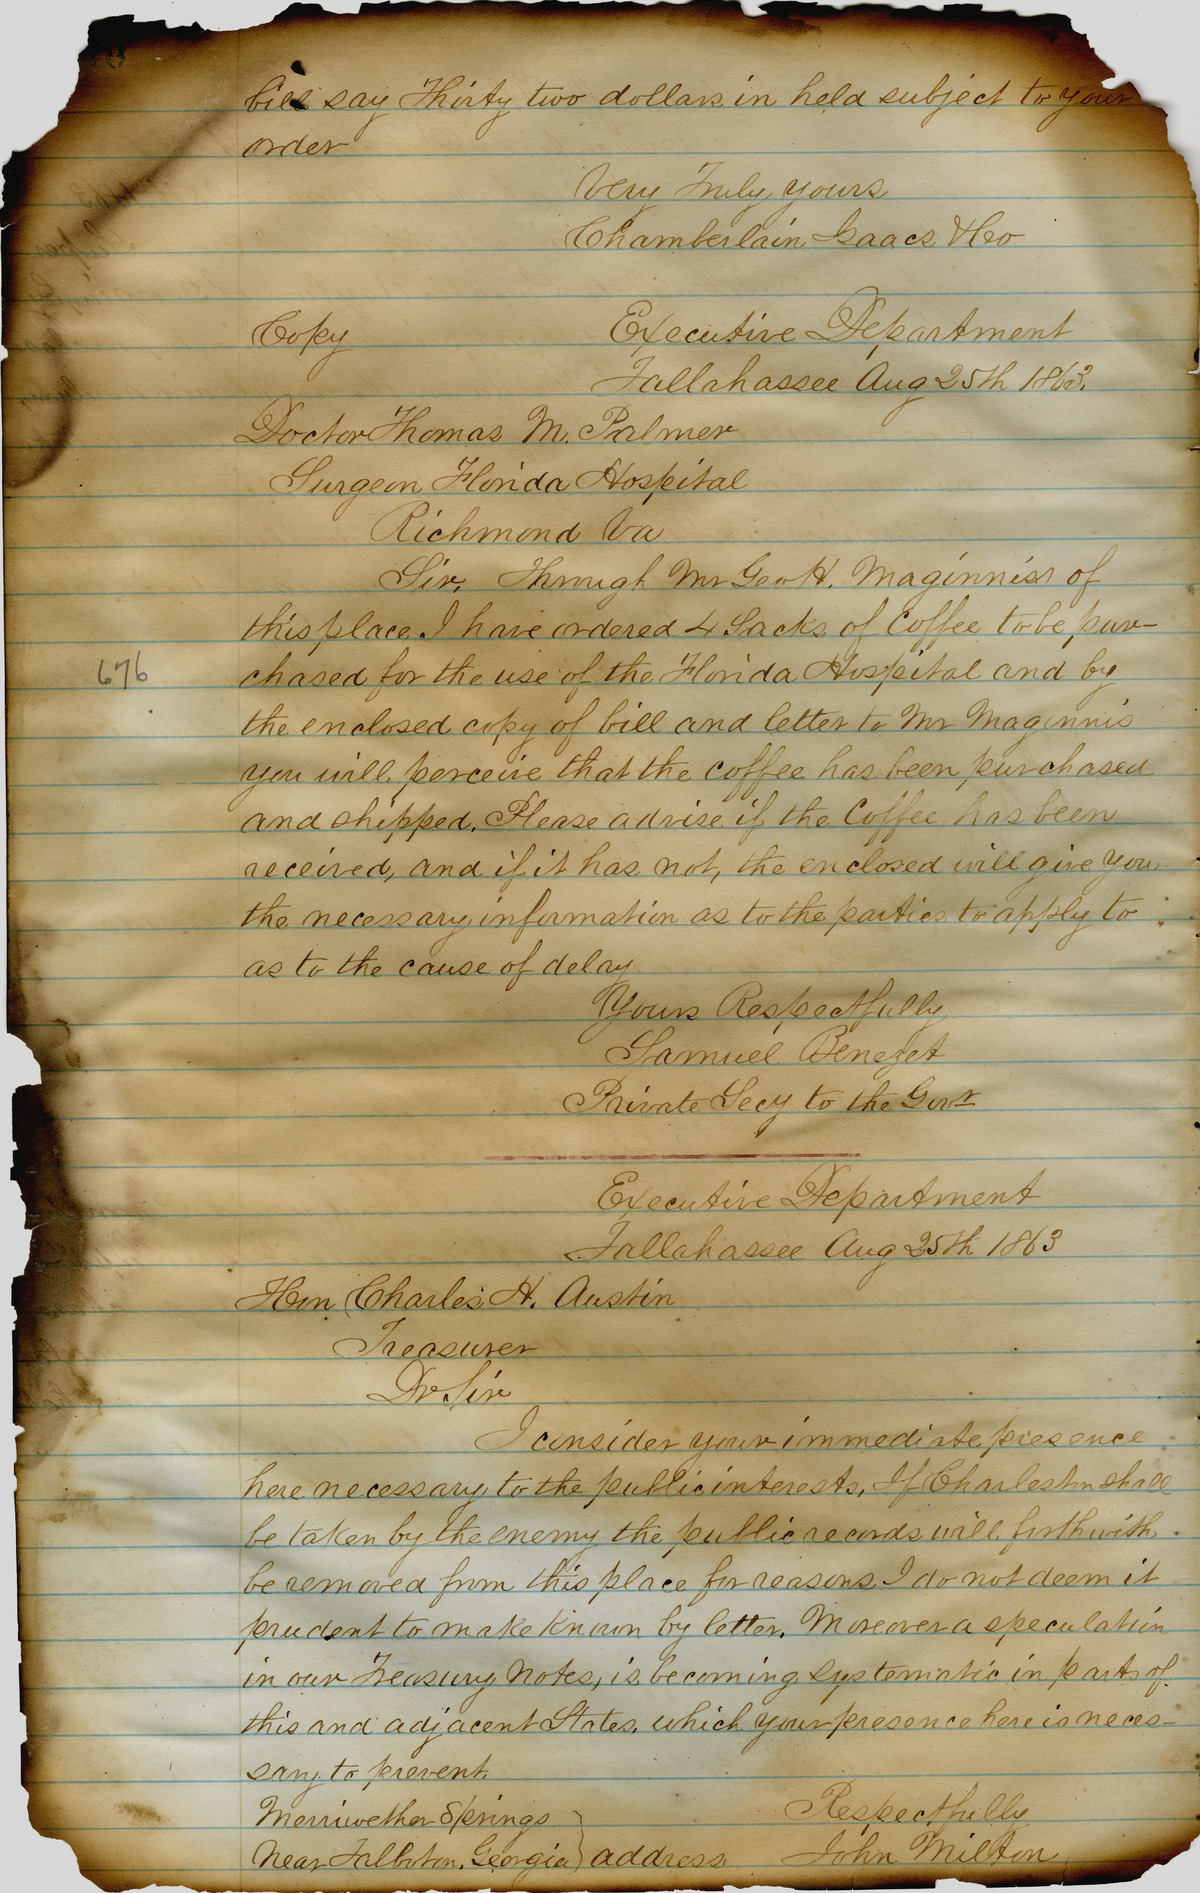 bill say Thirty two dollars in held subject to your
order
Very Truly yours
Chamberlain Isaacs & Co
Copy
Executive Department
Tallahassee Aug 25th 1863.
Doctor Thomas M. Palmer
Surgeon Florida Hospital
Richmond Va
Sir, Through Mr Geo H. Maginniss of
this place I have ordered 4 Sacks of Coffee to be pur-
676
chased for the use of the Florida Hospital and by
the enclosed copy of bill and letter to Mr Maginnis
you will perceive that the coffee has been purchased
and shipped. Please advise if the Coffee has been
received, and if it has not, the enclosed will give you
the necessary information as to the parties to apply to
as to the cause of delay
Yours Respectfully
Samuel Benezet
Private Secy to the Govr
Executive Department
Tallahassee Aug 25th 1863
Hon Charles H. Austin
Treasurer
Dr Sir
I consider your immediate presence
here necessary to the public interests, If Charleston shall
be taken by the enemy the public records will forthwith
be removed from this place for reasons I do not deem it
prudent to make known by letter. Moreover a speculation
in our Treasury Notes, is becoming systematic in parts of
this and adjacent States, which your presence here is neces-
sary to prevent.
Respectfully
John Milton
Merriwether Springs
Near Talboton, Georgia } address